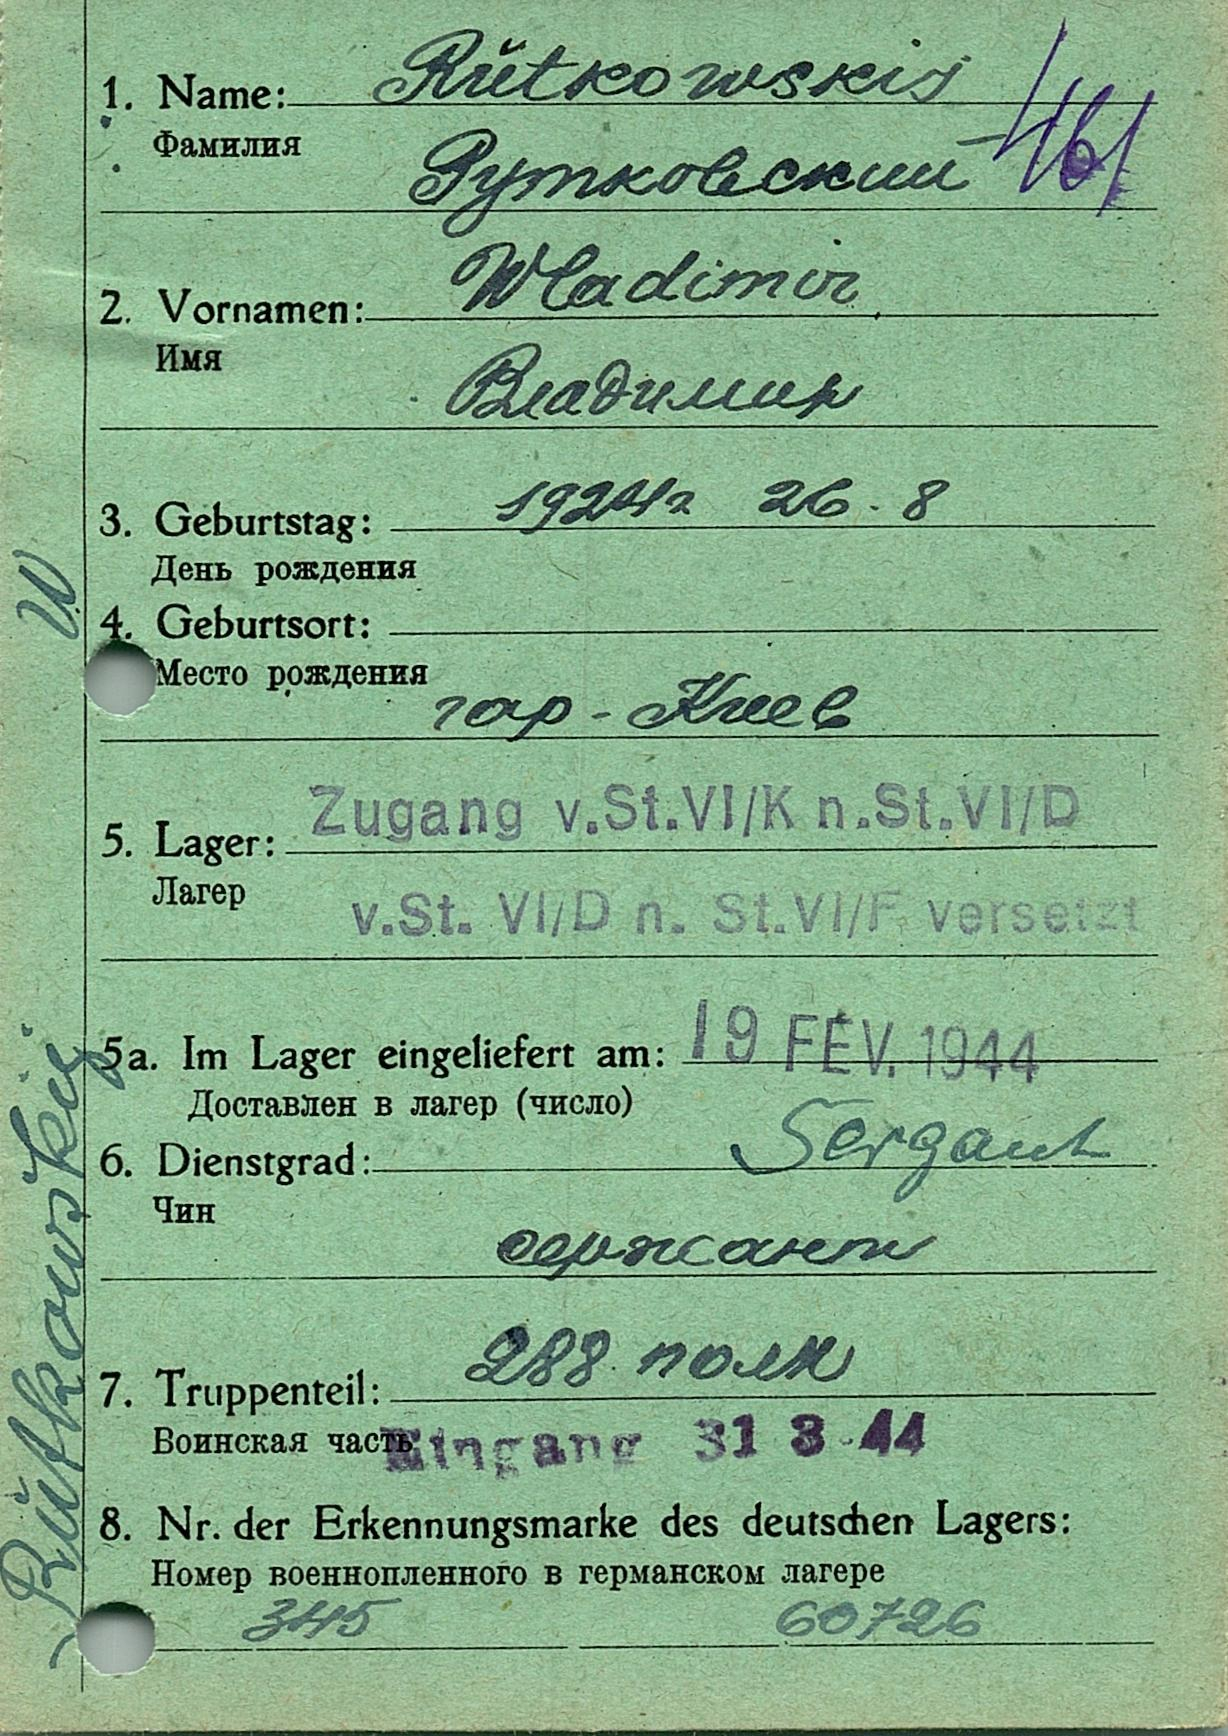 1. Name: Rŭtkowskij
461
Фамилия
Рутковский
2. Vornamen: Wladimir
Имя
Владимир
3. Geburtstag: 1924г 26.8
День рождения
4. Geburtsort:
Место рождения
гор-Киев
5. Lager: Zugang v.St.VI/K n.St.VI/D
Лагер
v.St. VI/D n. St.VI/F versetzt
5a. Im Lager eingeliefert am: 19 FEV. 1944
Доставлен в лагер (число)
6. Dienstgrad: Sergant
Чин
сержант
7. Truppenteil: 288 полк
Воинская часть
Eingang 31 3 44
8. Nr. der Erkennungsmarke des deutschen Lagers:
Номер военнопленного в германском лагере
345 60726
Rŭtkowskij W.